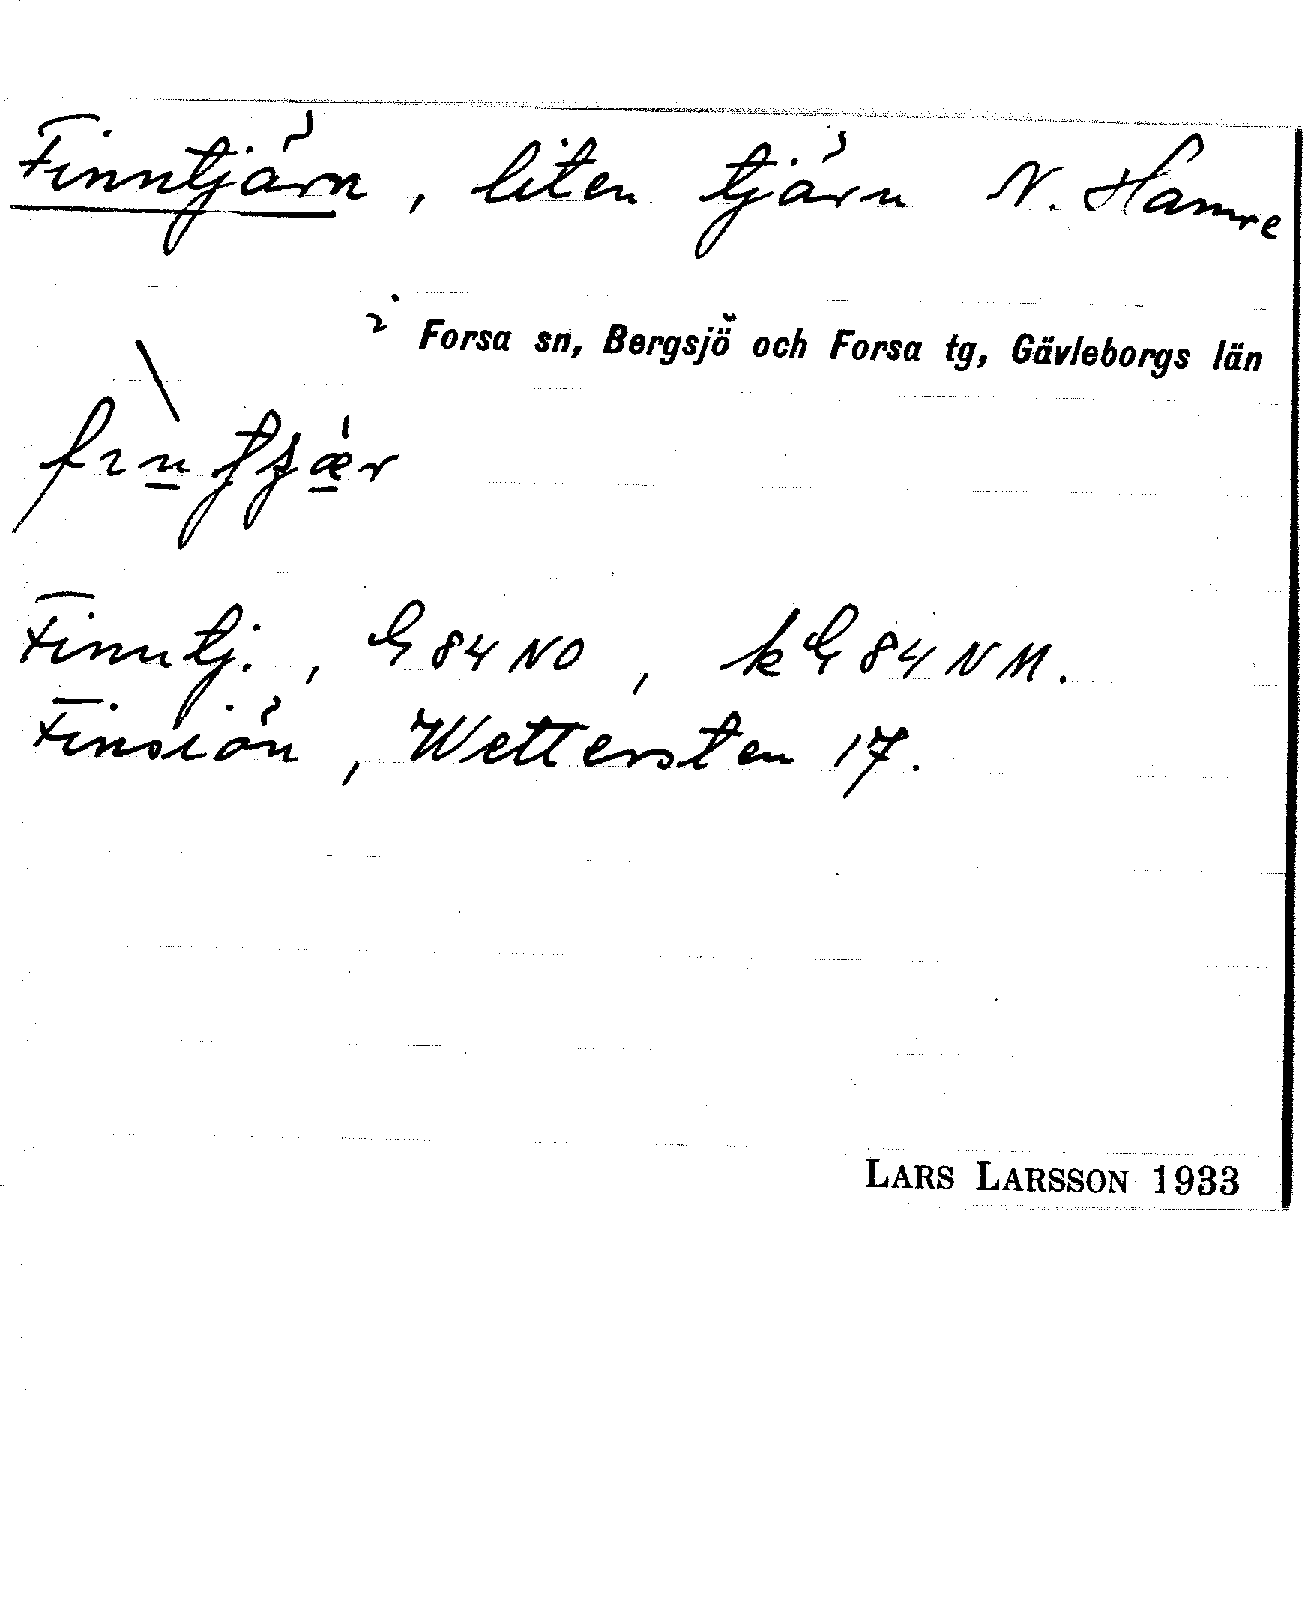 Finntjärn, liten tjärn N. Hamre
i Forsa sn, Bergsjö och Forsa tg, Gävleborgs län
Finntj., G 84 NO, kG 84 NM.
Finsiön, Wettersten 17.
LARS LARSSON 1933